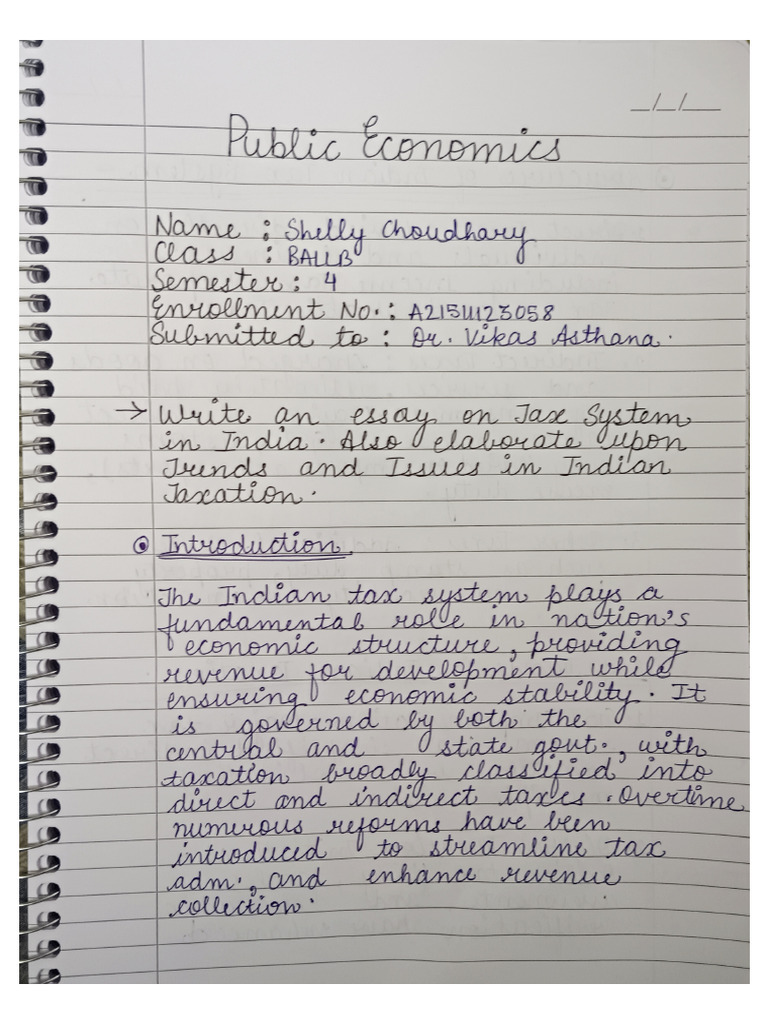 _/_/__
Public Economics
Name : Shelly Choudhary
Class : BALLB
Semester : 4
Enrollment No. : A21511123058
Submitted to : Dr. Vikas Asthana.
→ Write an essay on Tax System
in India. Also elaborate upon
Trends and Issues in Indian
Taxation.
Introduction.
The Indian tax system plays a
fundamental role in nation's
economic structure, providing
revenue for development while
ensuring economic stability. It
is governed by both the
central and state govt., with
taxation broadly classified into
direct and indirect taxes. Overtime
numerous reforms have been
introduced to streamline tax
adm., and enhance revenue
collection.